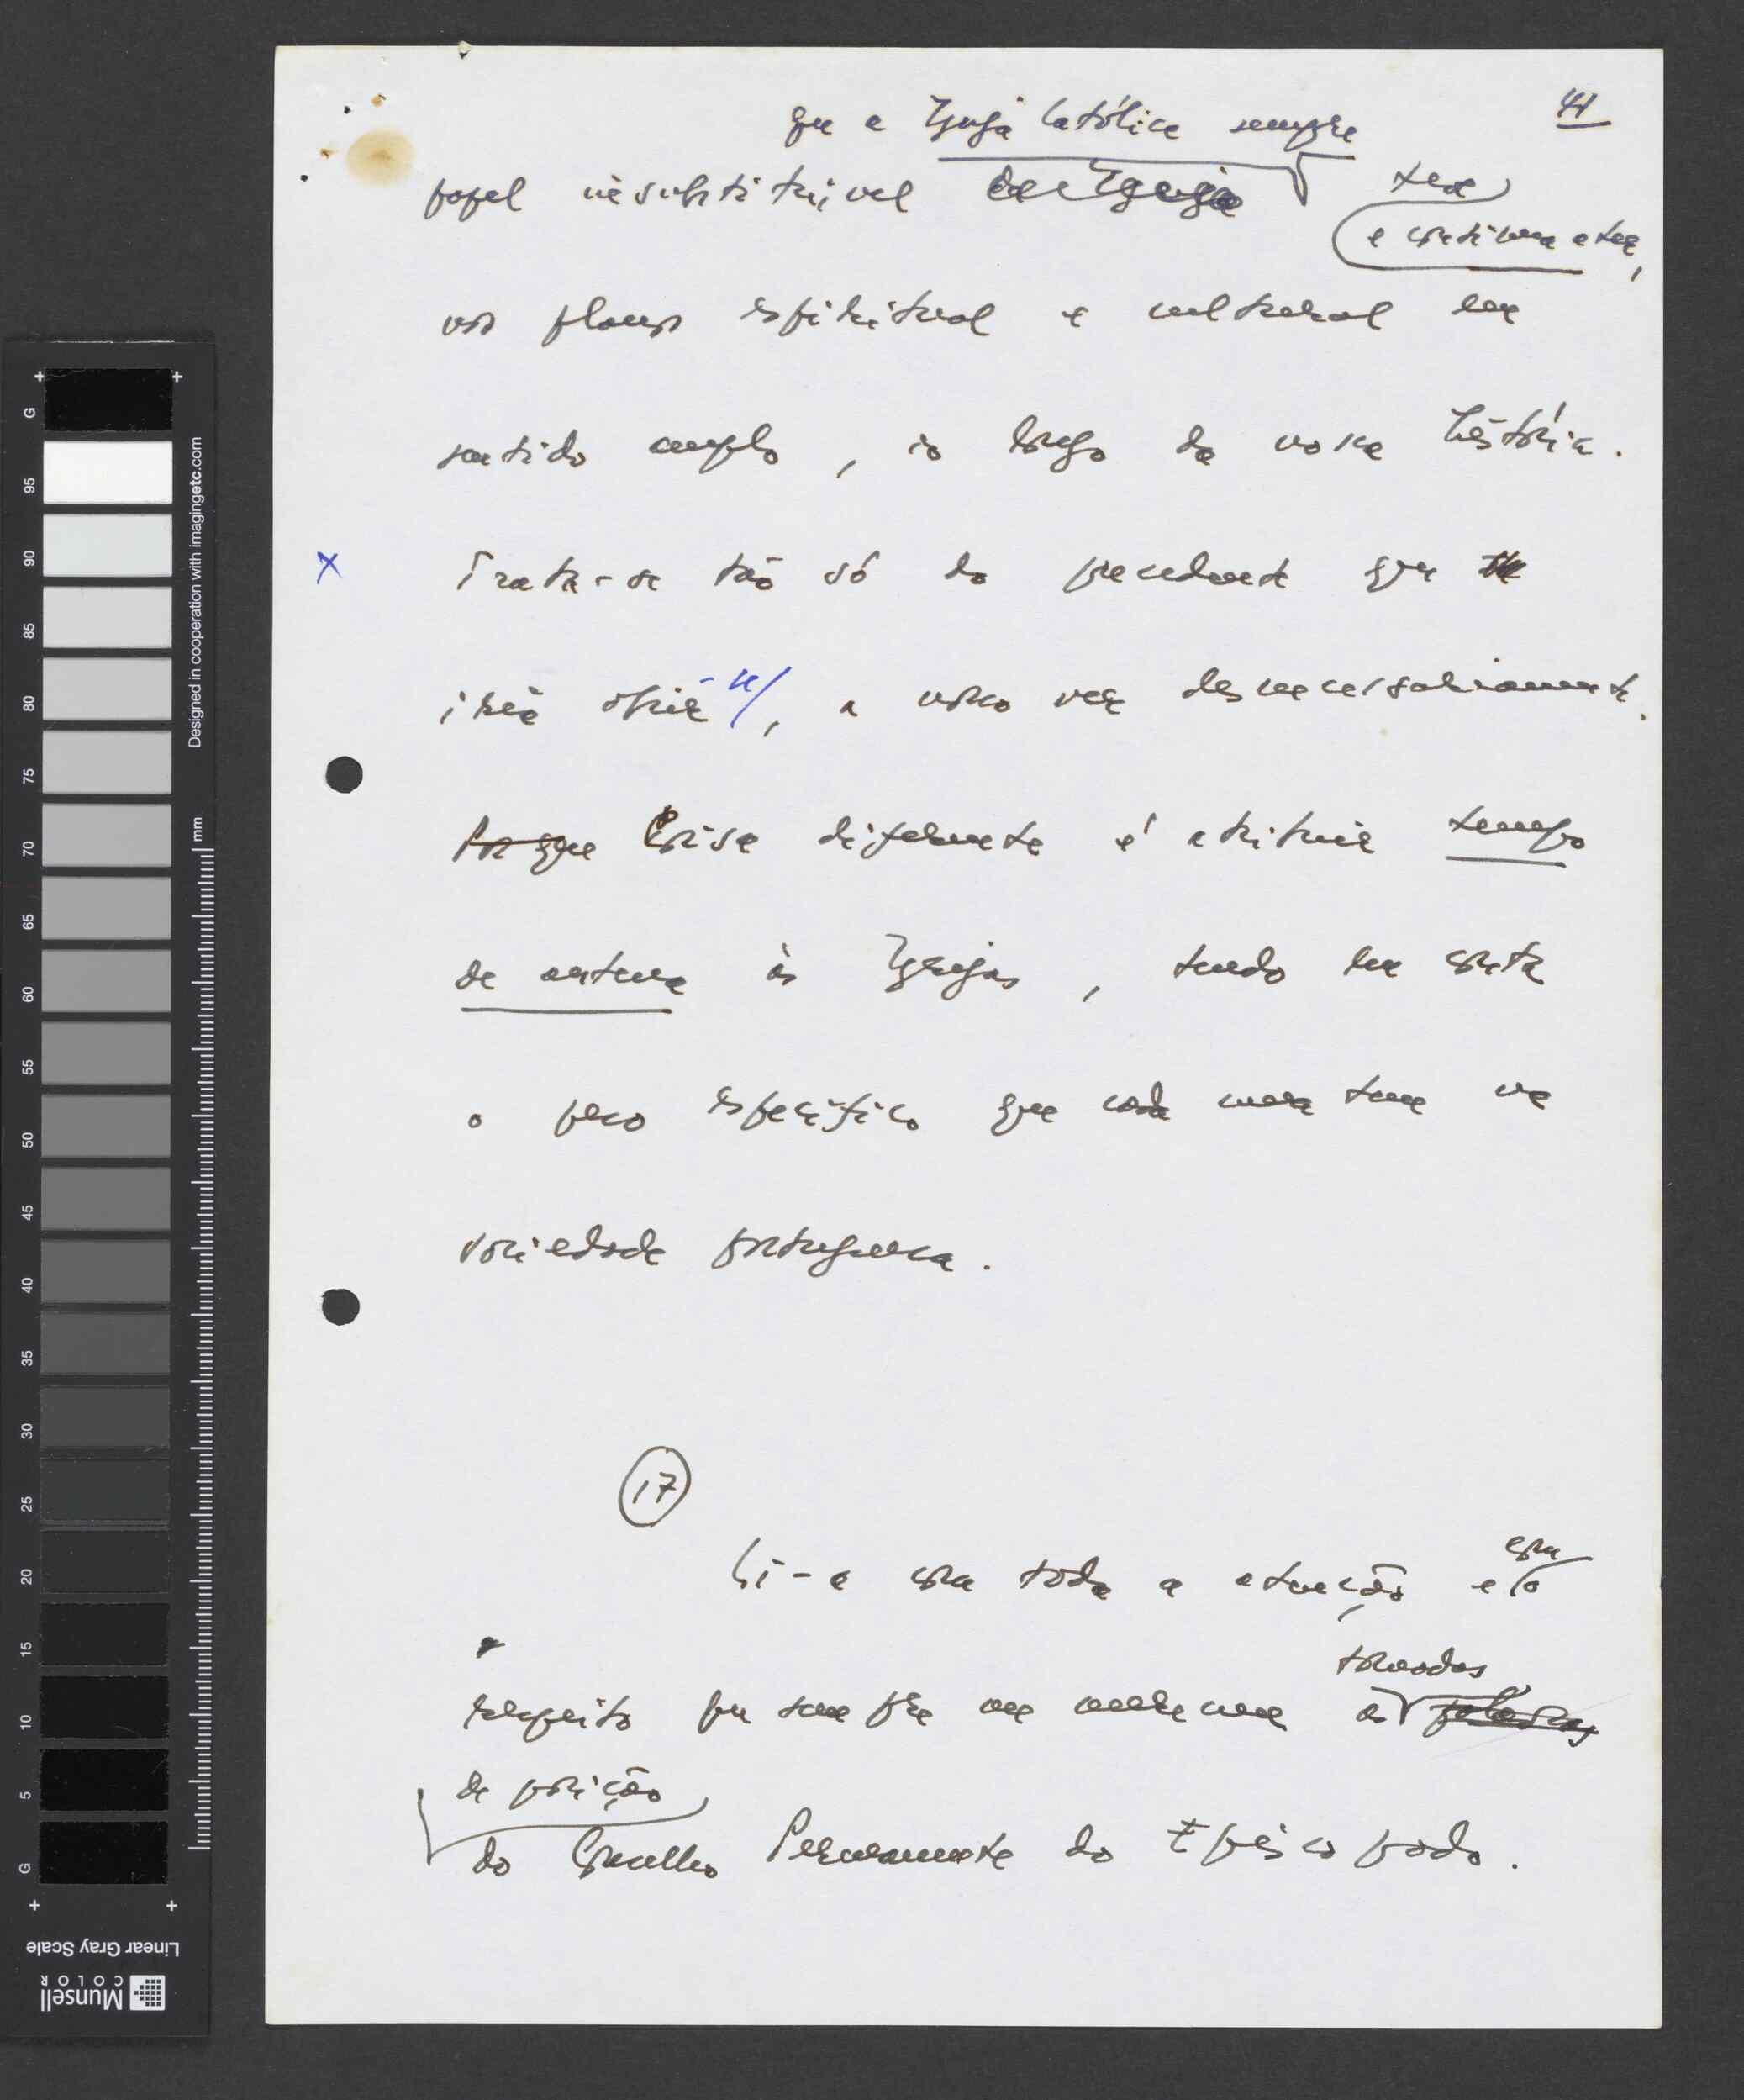 41
que a Igreja Católica sempre
papel insubstituível da Igreja teve
e continua a ter,
nos planos espiritual e cultural em
sentido amplo, ao longo da nossa história.
x Trata-se tão só do precedente que
iria abrir-se, a nosso ver desnecessariamente.
Porque Coisa diferente é atribuir tempo
de antena às Igrejas, tendo em conta
o peso específico que cada uma tem na
sociedade portuguesa.
17
Li-a com toda a atenção e com o
respeito que sempre me merecem as tomadas
de posição
do Conselho Permanente do Episcopado.
G
95
90
85
80
75
70
65
60
55
50
45
40
35
30
25
20
15
10
5
G
mm
Designed in cooperation with imagingetc.com
Linear Gray Scale
Munsell
COLOR